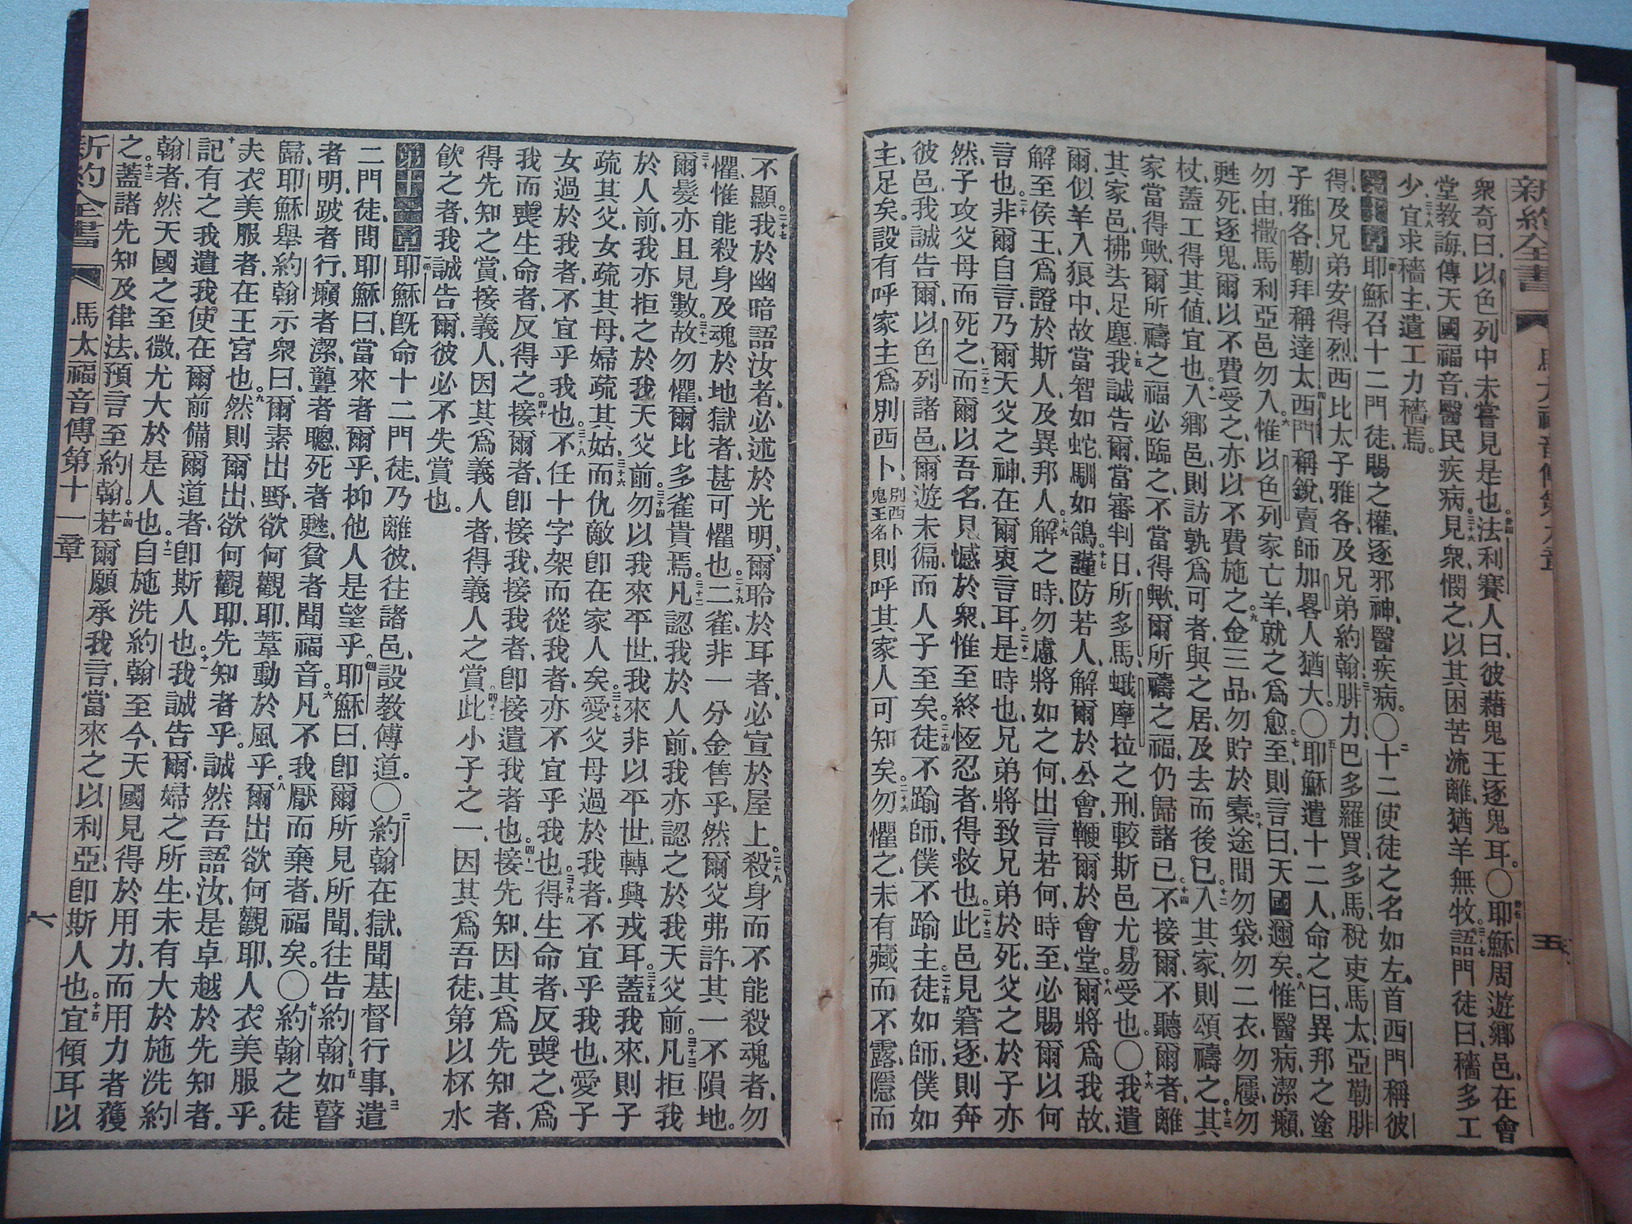 新約全書 馬太福音傳第九章 五
衆奇曰、以色列中未嘗見是也、法利賽人曰、彼藉鬼王逐鬼耳。〇耶穌周遊鄉邑、在會
堂教誨、傳天國福音、醫民疾病、見衆憫之、以其困苦流離、猶羊無牧、語門徒曰、穡多工
少、宜求穡主、遣工力穡焉。
耶穌召十二門徒、賜之權、逐邪神、醫疾病。〇十二使徒之名如左、首西門稱彼
得、及兄弟安得烈、西比太子雅各、及兄弟約翰、腓力、巴多羅買、多馬、稅吏馬太、亞勒腓
子雅各、勒拜稱達太、西門稱銳、賣師加畧人猶大。〇耶穌遣十二人、命之曰、異邦之塗
勿由、撒馬利亞邑勿入、惟以色列家亡羊、就之爲愈、至則言曰、天國邇矣、惟醫病、潔癩、
甦死、逐鬼、爾以不費受之、亦以不費施之、金三品、勿貯於橐、途間勿袋、勿二衣、勿屨、勿
杖、蓋工得其值、宜也、入鄉邑、則訪孰爲可者、與之居、及去而後已、入其家、則頌禱之、其
家當得歟、爾所禱之福必臨之、不當得歟、爾所禱之福、仍歸諸己、不接爾、不聽爾者、離
其家邑、拂去足塵、我誠告爾、當審判日、所多馬、蛾摩拉之刑、較斯邑尤易受也、〇我遣
爾、似羊入狼中、故當智如蛇、馴如鴿、謹防若人、解爾於公會、鞭爾於會堂、爾將爲我故、
解至侯王、爲證於斯人、及異邦人、解之時、勿慮將如之何、出言若何、時至、必賜爾以何
言也、非爾自言、乃爾天父之神、在爾衷言耳、是時也、兄弟將致兄弟於死、父之於子亦
然、子攻父母而死之、而爾以吾名、見憾於衆、惟至終恆忍者、得救也、此邑見窘逐、則奔
彼邑、我誠告爾、以色列諸邑、爾遊未徧、而人子至矣、徒不踰師、僕不踰主、徒如師、僕如
主、足矣、設有呼家主爲別西卜、別西卜鬼王名則呼其家人可知矣、勿懼之、未有藏而不露、隱而
不顯、我於幽暗語汝者、必述於光明、爾聆於耳者、必宣於屋上、殺身而不能殺魂者、勿
懼、惟能殺身及魂於地獄者、甚可懼也、二雀非一分金售乎、然爾父弗許、其一不隕地。
爾髮亦且見數、故勿懼、爾比多雀貴焉、凡認我於人前、我亦認之於我天父前、凡拒我
於人前、我亦拒之於我天父前、勿以我來平世、我來非以平世、轉興戎耳、蓋我來、則子
疏其父、女疏其母、婦疏其姑、而仇敵卽在家人矣、愛父母過於我者、不宜乎我也、愛子
女過於我者、不宜乎我也、不任十字架而從我者、亦不宜乎我也、得生命者、反喪之、爲
我而喪生命者、反得之、接爾者、卽接我、接我者、卽接遣我者也、接先知、因其爲先知者、
得先知之賞、接義人、因其爲義人者、得義人之賞、此小子之一、因其爲吾徒、第以杯水
飲之者、我誠告爾、彼必不失賞也。
耶穌旣命十二門徒、乃離彼、往諸邑、設教傳道。〇約翰在獄、聞基督行事、遣
二門徒、問耶穌曰、當來者爾乎、抑他人是望乎、耶穌曰、卽爾所見所聞、往告約翰、如瞽
者明、跛者行、癩者潔、聾者聰、死者甦、貧者聞福音、凡不我厭而棄者、福矣。〇約翰之徒
歸、耶穌舉約翰示衆曰、爾素出野、欲何觀耶、葦動於風乎、爾出欲何觀耶、人衣美服乎。
夫衣美服者、在王宮也、然則爾出、欲何觀耶、先知者乎、誠然、吾語汝、是卓越於先知者、
記有之、我遣我使在爾前、備爾道者、卽斯人也、我誠告爾、婦之所生、未有大於施洗約
翰者、然天國之至微、尤大於是人也、自施洗約翰至今、天國見得於用力、而用力者獲
之、蓋諸先知及律法預言、至約翰、若爾願承我言、當來之以利亞、卽斯人也、宜傾耳以
新約全書 馬太福音傳第十一章 六